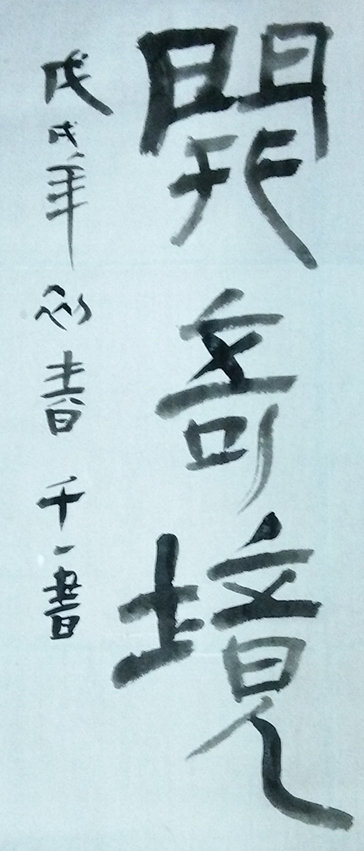 開奇境
戊戌年 心書 千一書